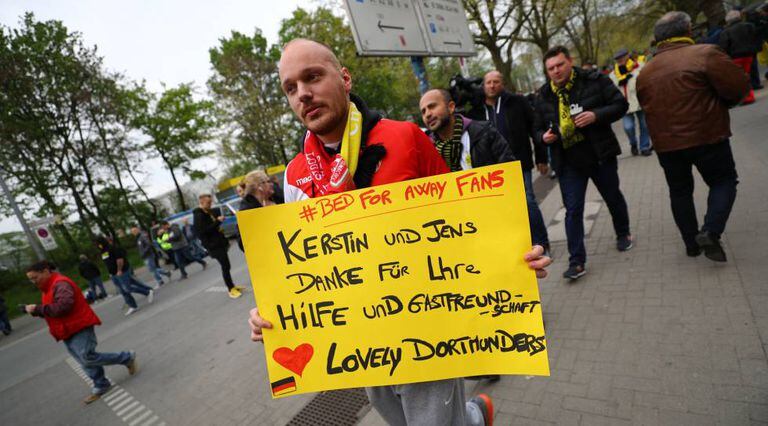 #BED FOR AWAY FANS
KERSTIN UND JENS
DANKE FÜR IHRE
HILFE UND GASTFREUND-
-SCHAFT
LOVELY DORTMUNDERS